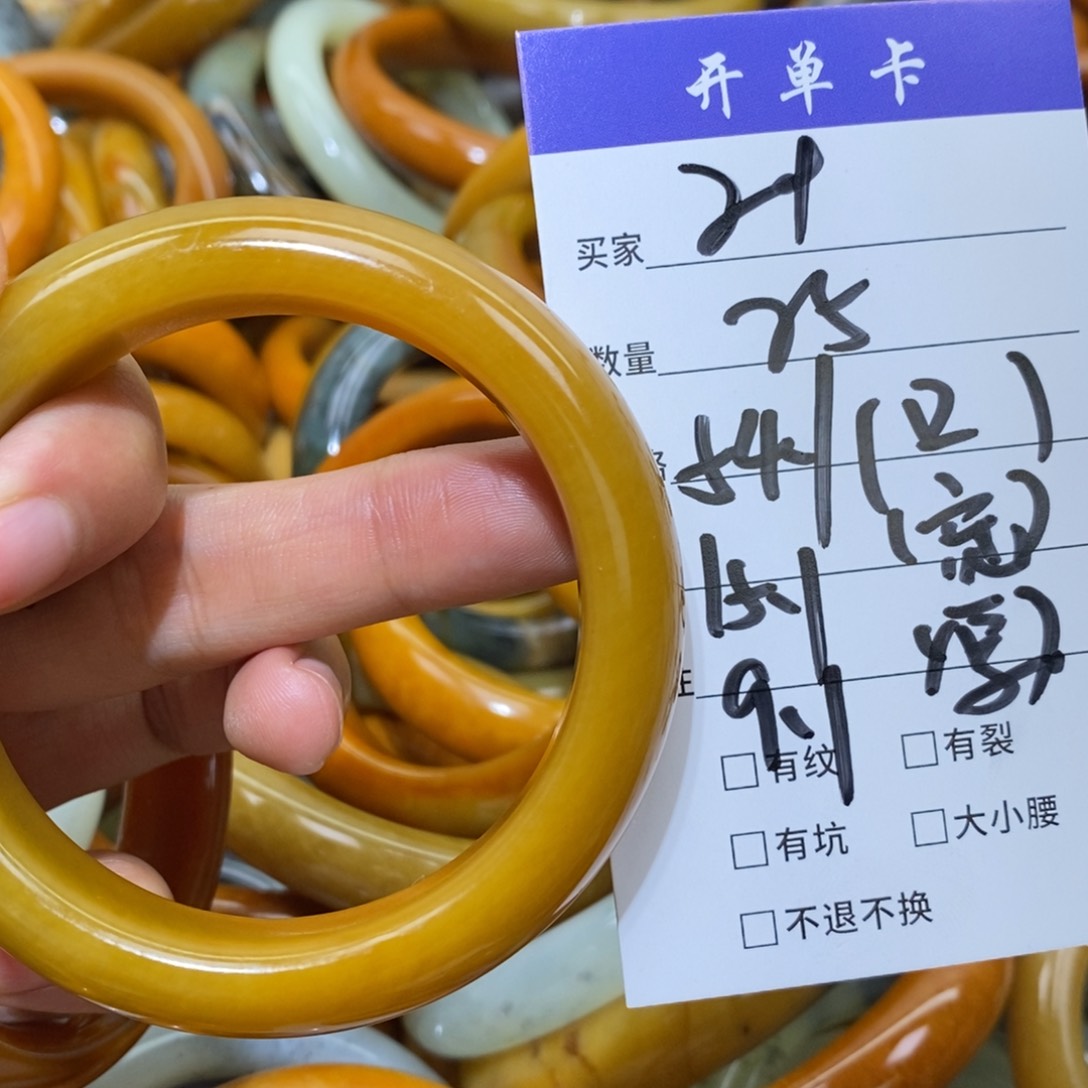 开单卡
买家 21
数量 25
格 54 (口)
15 (宽)
注 9.1 (厚)
有纹 有裂
有坑 大小腰
不退不换